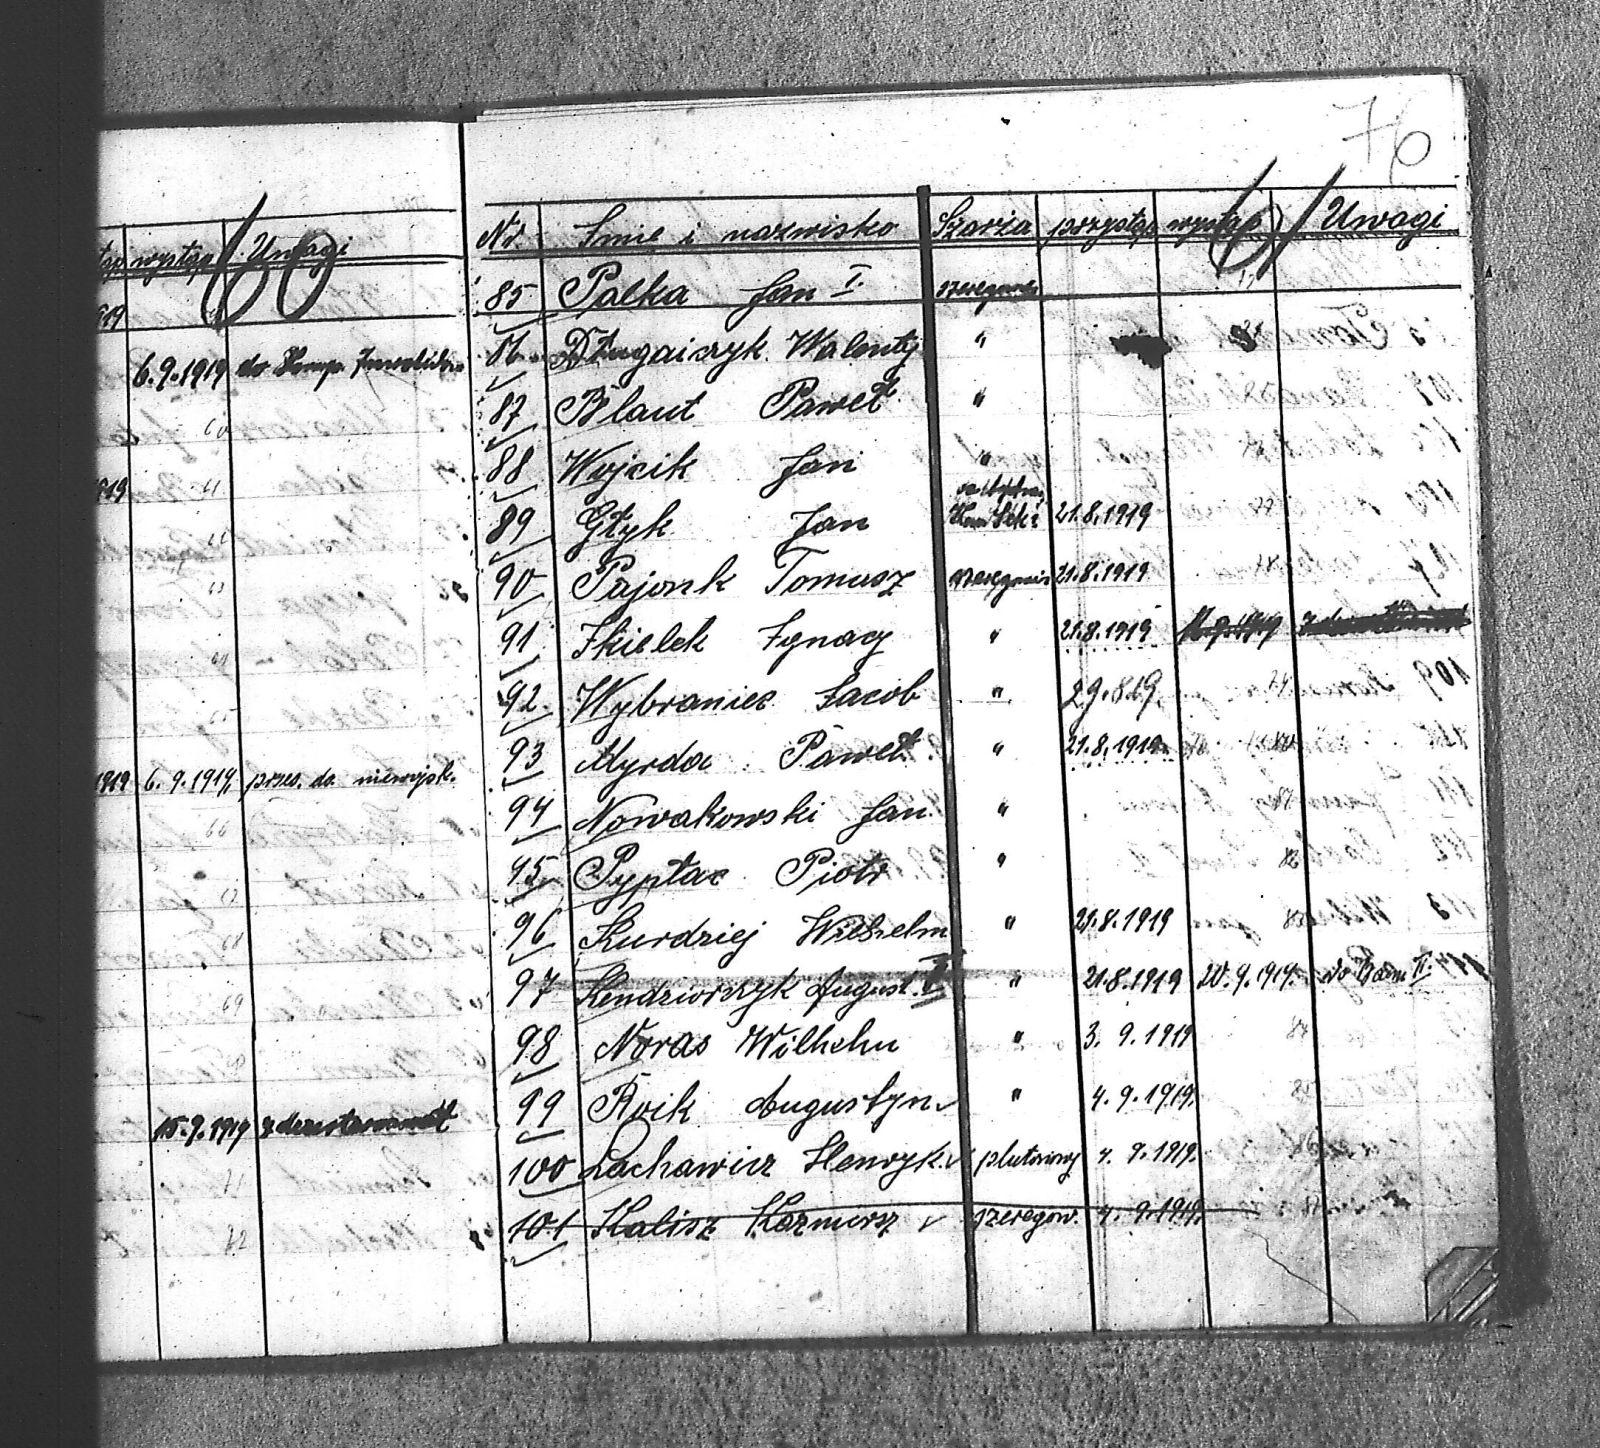 76
wystąp Uwagi
919
6.9.1919 do Komp.
919
1919 6.9.1919. przen. do niewojsk.
15.9.1919 zdezerterował
Nr. Imie i nazwisko Szarża przystąp wystąp Uwagi
85 Palka Jan I. szeregowiec
86 Długaiczyk Walenty "
87 Blaut Paweł "
88 Wojcik Jan "
89 Głyk Jan 21.8.1919
90 Pajonk Tomasz szeregowiec 21.8.1919
91 Skielek Ignacy " 21.8.1919
92 Wybraniec Jacob " 29.8.19.
93 Myrda Paweł " 21.8.1919
94 Nowakowski Jan "
95 Pyptac Piotr "
96 Kurdziej Wilhelm " 21.8.1919
97 Kendziorczyk August. II " 21.8.1919 20.9.1919. do II.
98 Noras Wilhelm " 3.9.1919
99 Roik Augustyn " 4.9.1919.
100 Lachawicz Henryk plutonowy 4.9.1919.
101 Kalisz Kazmiersz szeregow. 4.9.1919.